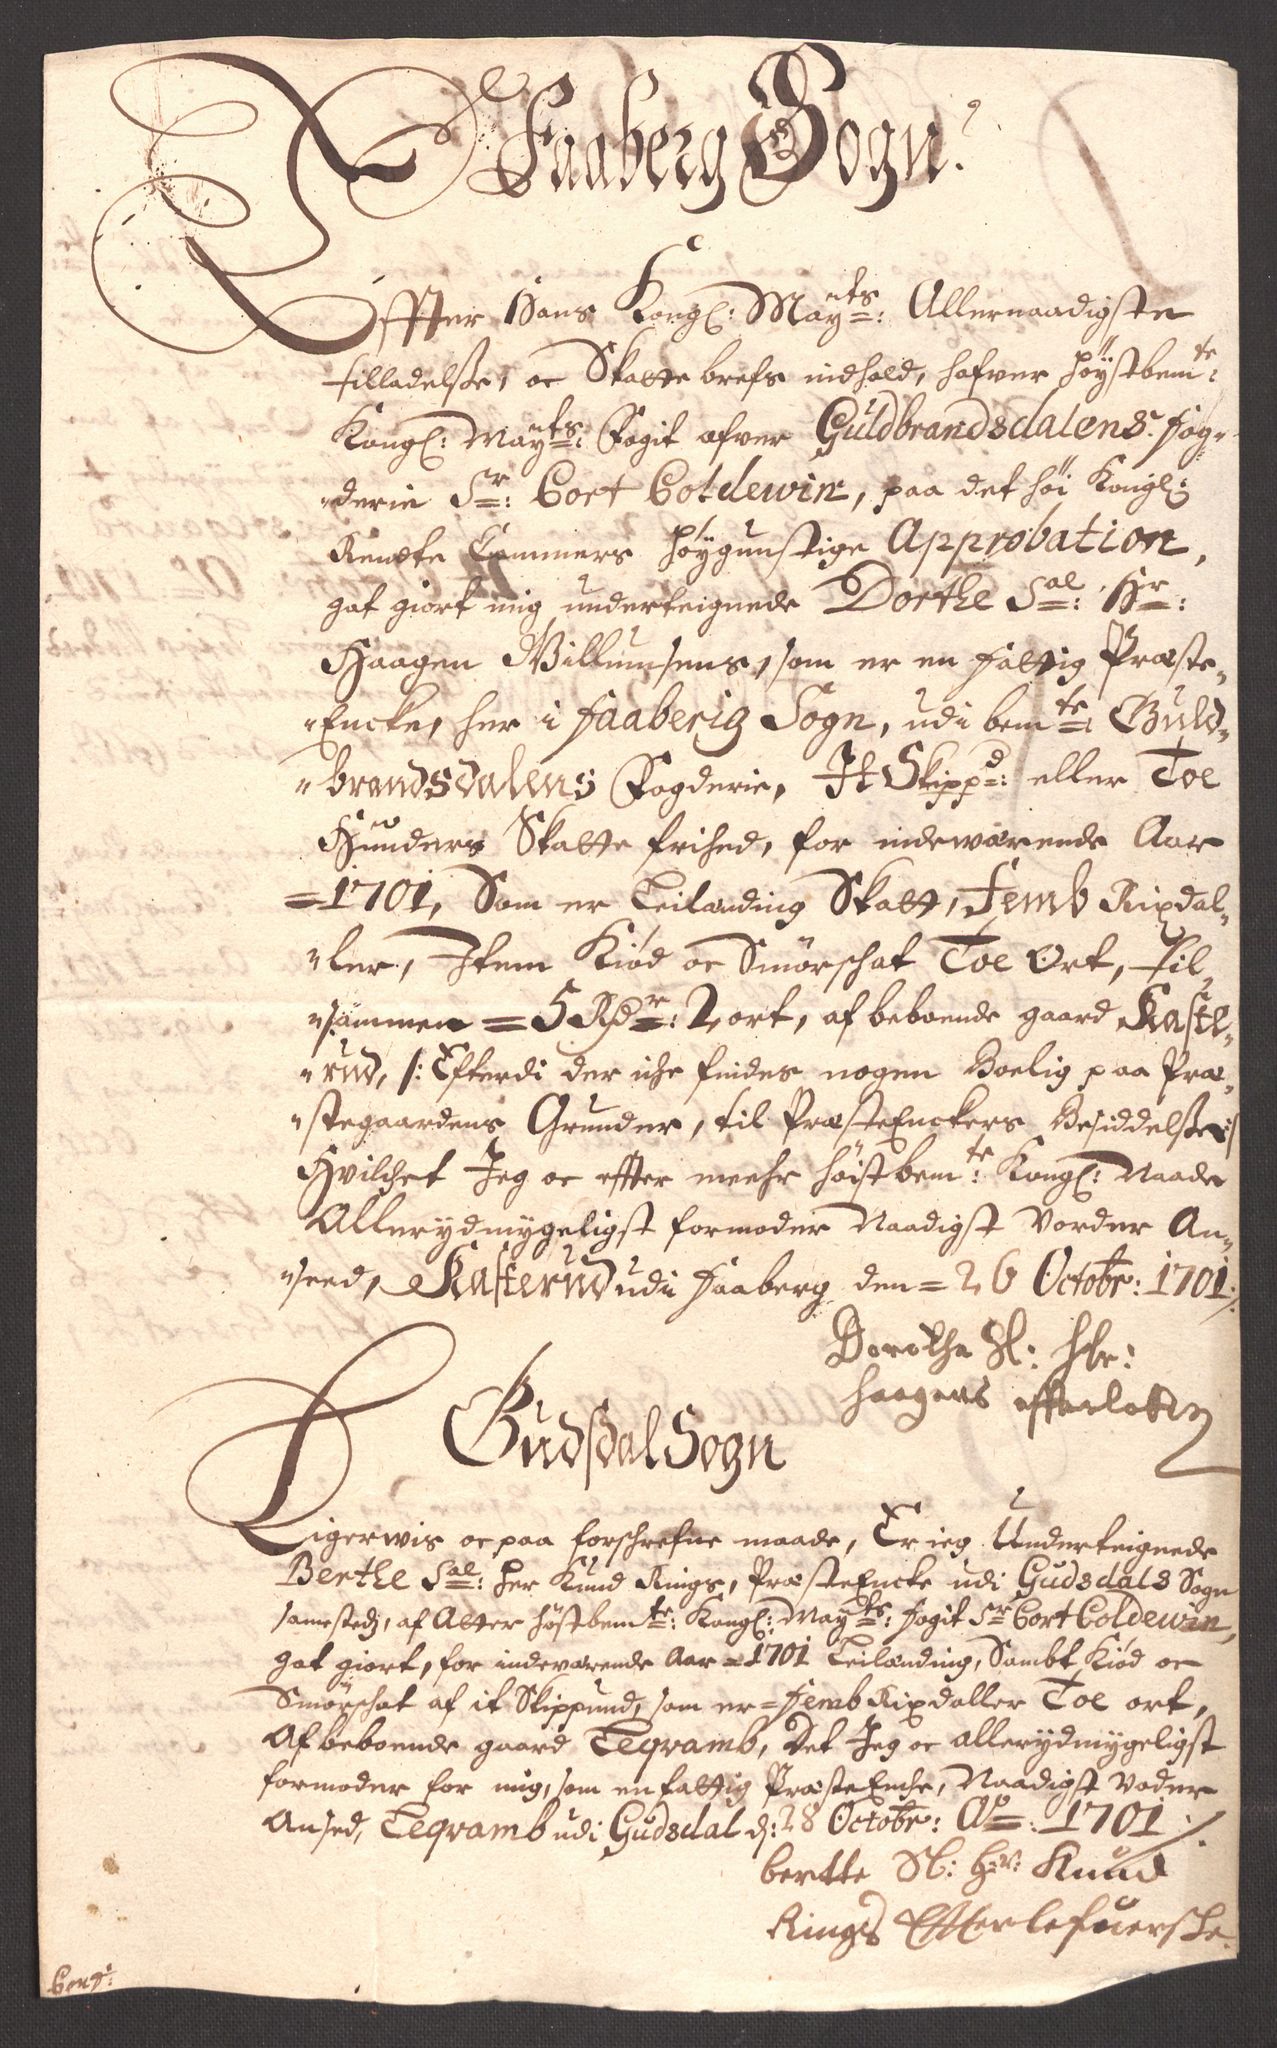 Faaberg Sogn.
Effter Hans Kongl: Mayts: Allernaadigste
tilladelße, oc Skatte brefs indhold, hafver höystbemte:
Kongl: Mayts: Fogit ofver Guldbrandsdalens Fog-
derie Sr: Cort Coldewin, paa det höi Kongl:
Rendte Cammers höÿgunstige Approbation,
gat giort mig underteignede Dorthe Sal: Hr:
Haagen Willumsens, som er en fattig Præste-
Encke, her i Faaberig Sogn, udi bemte: Guld-
brandsdalens Fogderie, It Skippd: eller Toe
Hunders Skatte frihed, for indewærende Aar
=1701, Som er Leilænding Skatt, Femb Rixdal-
ler, Item Kiöd oc Smörschat Toe Ort, til-
sammen = 5 Rdr: 2 ort, af beboende gaard Kastl-
rud, /: Efterdi der iche findes nogen Boelig paa Præ-
stegaardens Grunder, til PræsteEnckers Besiddelße:/
Hvilchet Jeg oc effter meehr höistbemte: Kongl: Naade
Allerydmygeligst formoder Naadigst Vorder An-
seed, Kasterud udi Faaberg den = 26 Octobr: 1701 /.
Dorothe Sl: Hr:
Haagens efferlatte
Gudsdal Sogn
Ligerwis oc paa forschrefne maade, Er ieg Underteignede
Berthe Sal: Her Knud Rings, PræsteEncke udi Gudsdals Sogn
sammestedz, af Atter höstbemte: Kongl: Mayts: fogit Sr Cort Coldewin,
gat giort, for indeværende Aar = 1701 Leilænding, Sambt Kiöd oc
Smörschat af it Skippund, som er = Femb Rixdaller Toe ort,
Af beboende gaard Teqramb, Det Jeg oc allerydmygeligst
formoder for mig, som en fattig PræsteEnche, Naadigst Vorder
Ansed, Teqramb udi Gudsdal d: 28 Octobr: Ao: 1701 /.
bertte Sl: Hr: Knud
Rings Efterlefuerske